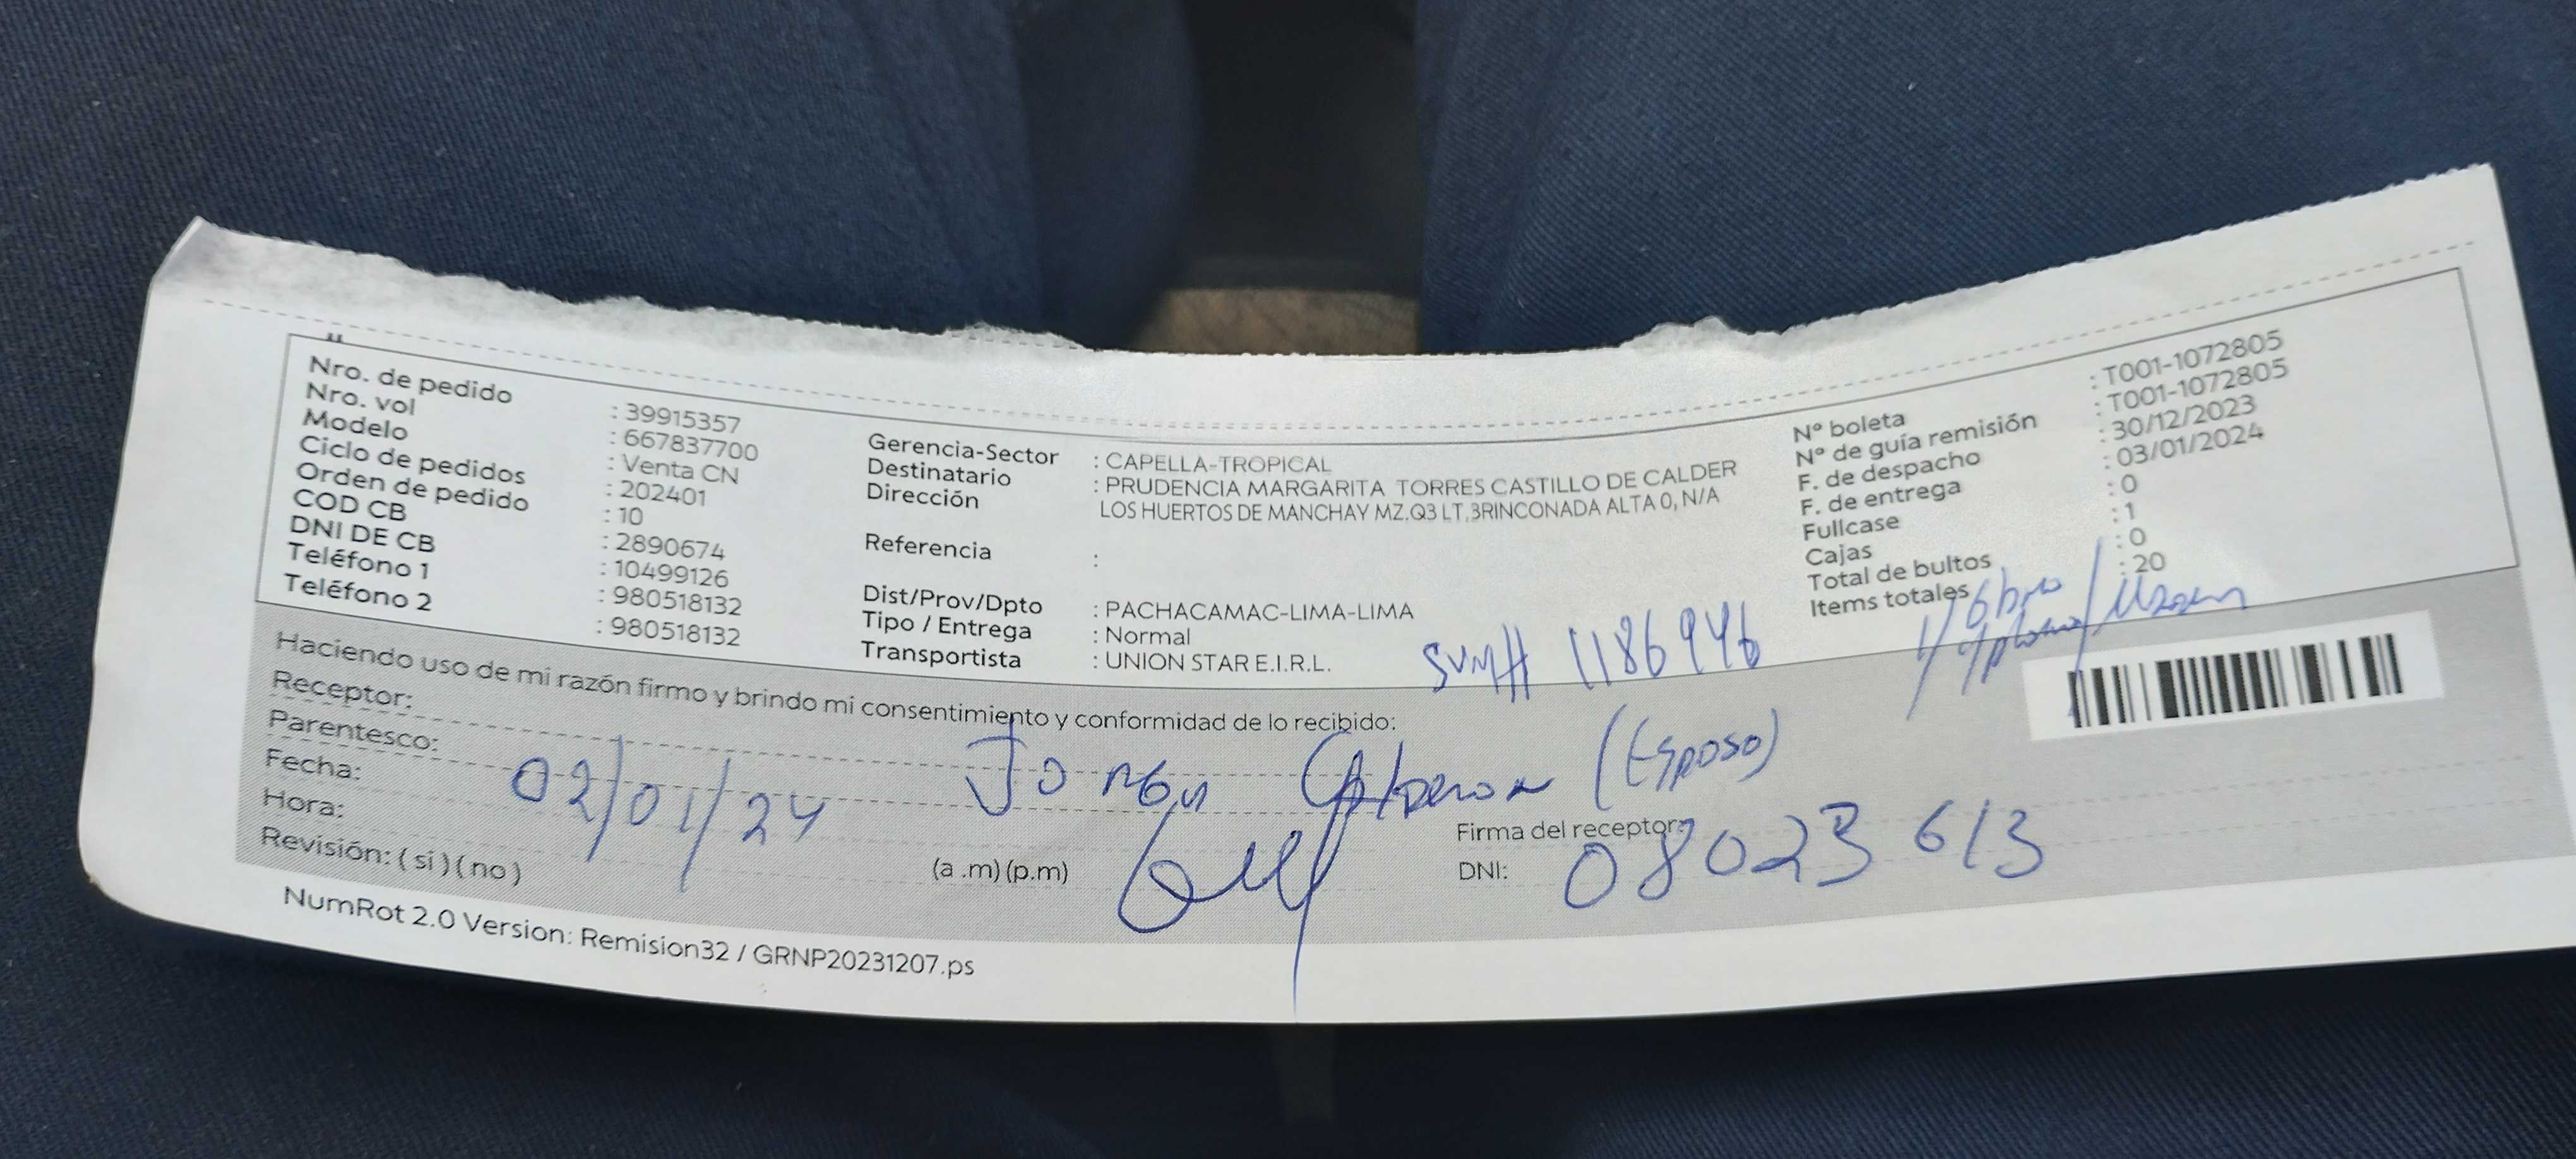 Nro. de pedido : 39915357
Nro. vol : 667837700
Modelo : Venta CN
Ciclo de pedidos : 202401
Orden de pedido : 10
COD CB : 2890674
DNI DE CB : 10499126
Teléfono 1 : 980518132
Teléfono 2 : 980518132
Gerencia-Sector : CAPELLA-TROPICAL
Destinatario : PRUDENCIA MARGARITA TORRES CASTILLO DE CALDER
Dirección LOS HUERTOS DE MANCHAY MZ.Q3 LT,3RINCONADA ALTA 0, N/A
Referencia :
Dist/Prov/Dpto : PACHACAMAC-LIMA-LIMA
Tipo / Entrega : Normal
Transportista : UNION STAR E.I.R.L.
Nº boleta : T001-1072805
Nº de guía remisión : T001-1072805
F. de despacho : 30/12/2023
F. de entrega : 03/01/2024
Fullcase : 0
Cajas : 1
Total de bultos : 0
Items totales : 20
1186946
Haciendo uso de mi razón firmo y brindo mi consentimiento y conformidad de lo recibido:
Receptor:
Parentesco: (Esposo)
Fecha: 02/01/24
Hora: (a .m) (p.m)
Revisión: ( si ) ( no )
Firma del receptor:
DNI: 08023613
NumRot 2.0 Version: Remision32 / GRNP20231207.ps